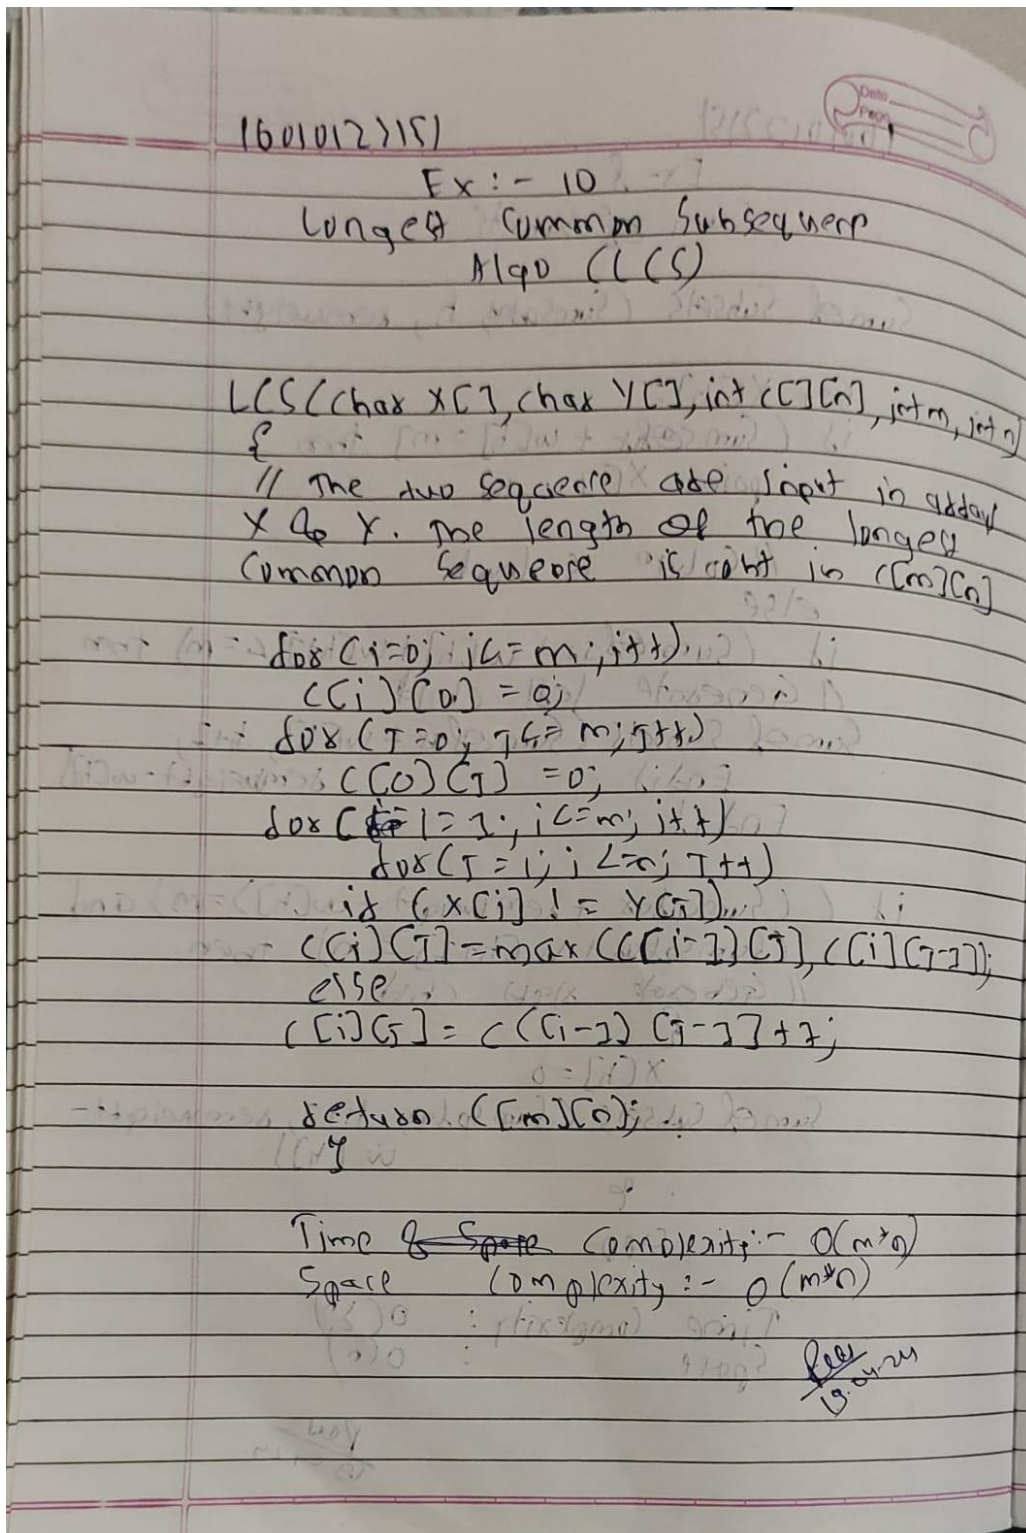 16010123151
Date
Page
Ex :- 10
Longest Common Subsequenc
Algo (LCS)
LCS(char X[], char Y[], int c[][n], int m, int n)
{
// The two sequence are input in array
X & Y. The length of the longest
Common Sequence is in c[m][n]
for (i=0; i<=m; i++)
c[i][0] = 0;
for (J=0; J<=n; J++)
c[0][J] = 0;
for (i=1; i<=m; i++)
for(J=1; j<=n; J++)
if (x[i] != Y[J])
c[i][J] = max (c[i-1][J], c[i][J-1]);
else
c[i][J] = c[i-1][J-1]+1;
return c[m][n];
}
Time Complexity :- O(m*n)
Space Complexity :- O(m*n)
19.04.24